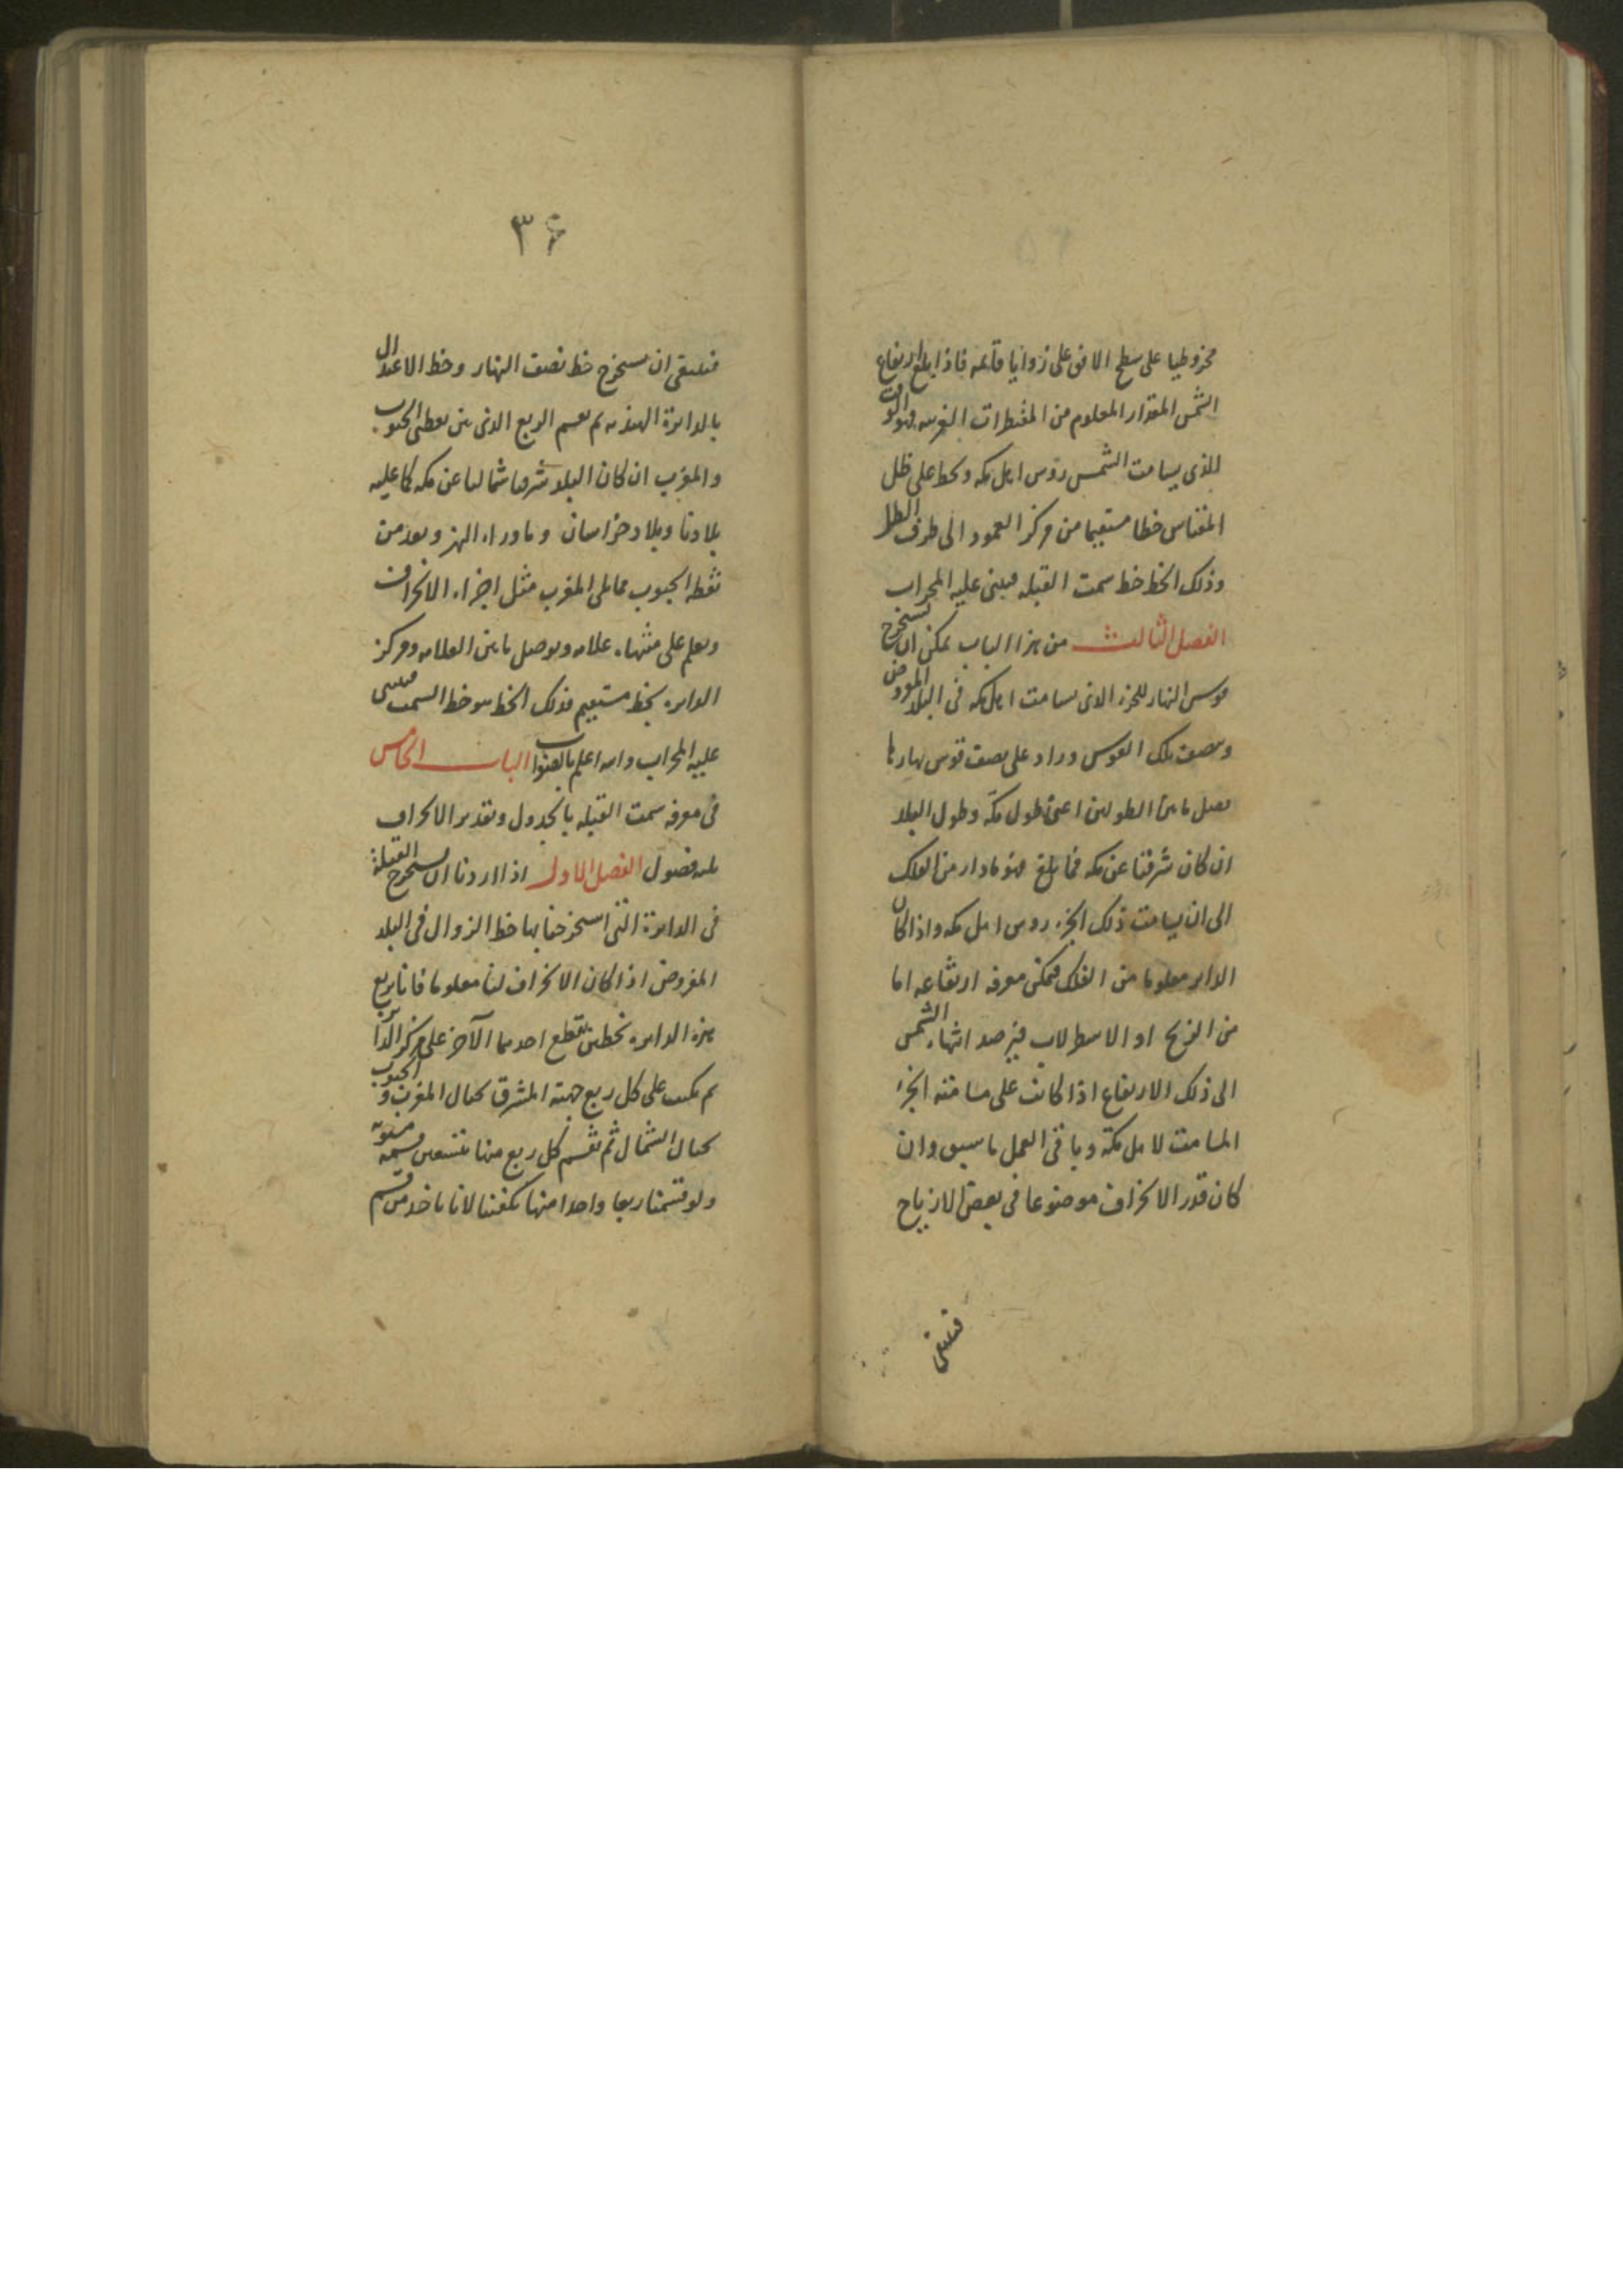 مخروطيا على سطح الافق على زوايا قايمه فاذا بلغ ارتفاع
الشمس المقدار المعلوم من المقنطرات الغربيه فهو الوقت
الذى يسامت الشمس رؤس اهل مكه ونخط على ظل
المقياس خطا مستقيما من مركز العمود الى طرف الظل
وذلك الخط خط سمت القبله فيبنى عليه المحراب
الفصل الثالث من هذا الباب يمكن ان نستخرج
قوس النهار للجزء الذى يسامت اهل مكه فى البلد المفروض
وينصف تلك القوس ويزاد على نصف قوس نهارها
فضل ما بين الطولين اعنى طول مكة وطول البلد
ان كان شرقيا عن مكه فما بلغ فهو ما دار من الفلك
الى ان يسامت ذلك الجزء روس اهل مكه واذا كان
الداير معلوما من الفلك فيمكن معرفه ارتفاعه اما
من الزيج او الاسطرلاب فيرصد انتهاء الشمس
الى ذلك الارتفاع اذا كانت على مسامته الجزء
المسامت لاهل مكة وباقى العمل ما سبق وان
كان قدر الانحراف موضوعا فى بعض الازياج
فينبغى
٣۶
فينبغى ان نستخرج خط نصف النهار وخط الاعتدال
بالدايرة الهنديه ثم نقسم الربع الذى بين نقطتى الجنوب
والمغرب ان كان البلد شرقيا شماليا عن مكه كما عليه
بلادنا وبلاد خراسان وما وراء النهر ويعد من
نقطه الجنوب مما يلى المغرب مثل اجزاء الانحراف
ويعلم على منتهاه علامه ويوصل ما بين العلامه ومركز
الدايره بخط مستقيم فذلك الخط هو خط السمت فيبنى
عليه المحراب والله اعلم بالصواب الباب الخامس
فى معرفه سمت القبله بالجدول وتقدير الانحراف
ثلثه فصول الفصل الاول اذا اردنا ان نستخرج القبلة
فى الدايرة التى استخرجنا بها خط الزوال فى البلد
المفروض اذا كان الانحراف لنا معلوما فانا نربع
هذه الدايره بخطين يقطع احدهما الآخر على مركز الدايره
ثم نكتب على كل ربع جهته المشرق بحيال المغرب والجنوب
بحيال الشمال ثم نقسم كل ربع منها بتسعين قسمه مستويه
ولو قسمنا ربعا واحدا منها تكفينا لانا ناخذ من قسم